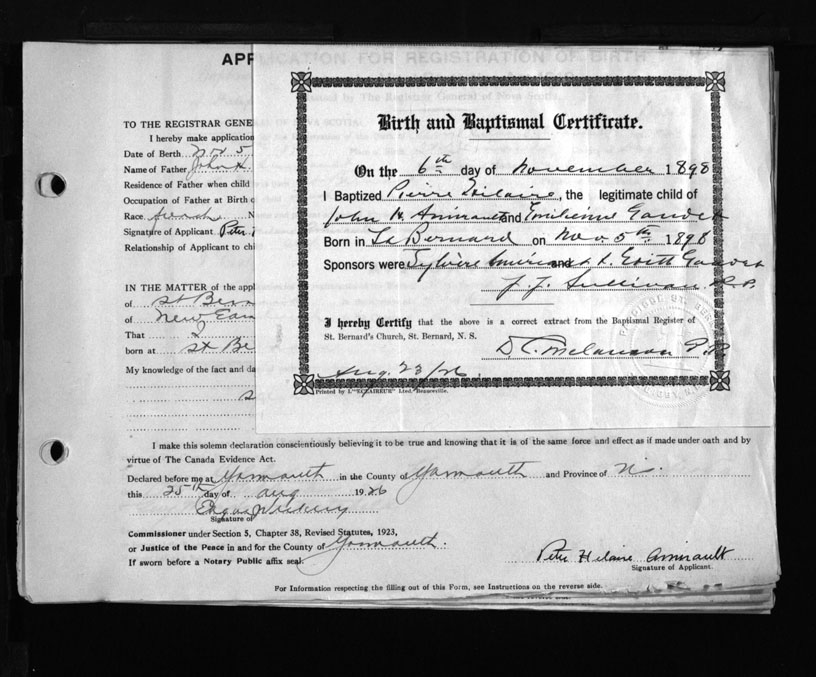 APPLICATION FOR REGISTRATION OF BIRTH
TO THE REGISTRAR GENE
I hereby make application
Date of Birth Nov 5
Name of Father John H.
Residence of Father when child
Occupation of Father at Birth o
Race French N
Signature of Applicant Peter
Relationship of Applicant to chi
IN THE MATTER of the appl
of St Bern
of New Eam
That I
born at St Be
My knowledge of the fact and da
Birth and Baptismal Certificate.
On the 6th day of November 1898
I Baptized Pierre Hilaire, the legitimate child of
John H. Amirault and Emilienne Gaudet
Born in St Bernard on Nov. 5th 1898
Sponsors were Sylvère Amirault and L. Edith Gaudet
J. J. Sullivan P.P.
I hereby Certify that the above is a correct extract from the Baptismal Register of
St. Bernard's Church, St. Bernard, N. S.
D. C. Melanson P.P.
Aug. 23/26.
Printed by L'"ECLAIREUR" Lted. Beauceville.
I make this solemn declaration conscientiously believing it to be true and knowing that it is of the same force and effect as if made under oath and by
virtue of The Canada Evidence Act.
Declared before me at Yarmouth in the County of Yarmouth and Province of N.S.
this 25th day of Aug 1926
Signature of
Commissioner under Section 5, Chapter 38, Revised Statutes, 1923,
or Justice of the Peace in and for the County of Yarmouth.
If sworn before a Notary Public affix seal.
Peter Hilaire Amirault
Signature of Applicant.
For Information respecting the filling out of this Form, see Instructions on the reverse side.